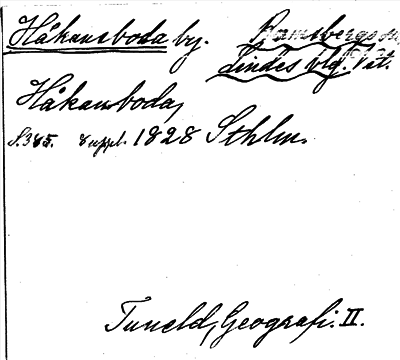 Håkansboda by. Ramsbergs sn,
Lindes blg. Vät.
Håkansboda,
S. 385. Suppl. 1828 Sthlm.
Tuneld, Geografi. II.